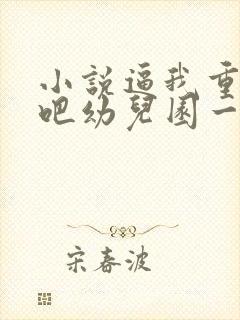 小説逼我重
吧幼兒園一
宋春波